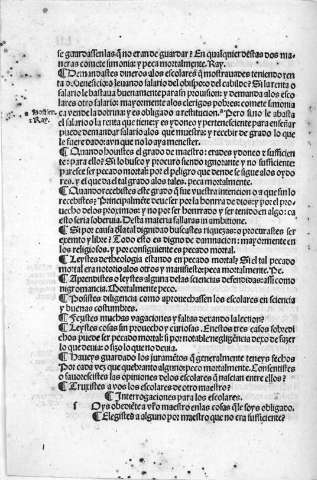 se guardassen las q̃ no eran de guardar? En qualquier destas dos ma
neras comete simonia: y peca mortalmente. Ray.
¶ Demandastes dineros alos escolares q̃ mostrauades teniendo ren
ta o beneficio o leuando salario del obispo o del cabildo? Si la renta o
salario le bastaua buenamente para su prouision: y demanda alos esco
lares otro salario: mayormente alos clerigos pobres: comete simonia
ca vende la dotrina: y es obligado a restitucion. Pero si no le abasta
Hostien.
Ray.
el salario o la renta que tiene: y es ydoneo y perteneciente para enseñar
puede demandar salario alos que muestra: y recebir de grado lo que
le fuere dado: aun que no lo aya menester.
¶ Quando houistes el grado de maestro: erades ydoneo e sufficien
te: para ello? Si lo busco y procuro siendo ignorante: y no sufficiente:
parece ser pecado mortal: por el peligro que dende se sigue alos oydo
res. y el que da el tal grado alos tales. peca mortalmente.
¶ Quando recebistes este grado q̃ fue vuestra intencion o a que fin lo
recebistes? Principalmẽte deue ser por la honrra de dios: y por el pro
uecho delos proximos: y no por ser honrrado y ser tenido en algo: ca
esto seria soberuia. Desta materia fallaras in ambitione.
¶ Si por causa dela tal dignidad buscastes riquezas: o procurastes ser
exempto y libre? Todo esto es digno de damnacion: mayormente en
los religiosos, y por consiguiente es pecado mortal.
¶ Leystes de theologia estando en pecado mortal? Si el tal pecado
mortal era notorio alos otros y manifiesto: peca mortalmente. Pe.
¶ Aprendistes o leystes alguna delas sciencias defendidas: assi como
nigromancia. Mortalmente peco.
¶ Posistes diligencia como aprouechassen los escolares en sciencia
y buenas costumbres.
¶ Fezistes muchas vagaciones y faltas dexando la lection?
¶ Leystes cosas sin prouecho y curiosas. En estos tres casos sobredi
chos puede ser pecado mortal: si por notable negligencia dexo de fazer
lo que deuia: o fizo lo que no deuia.
¶ Haueys guardado los juramẽtos q̃ generalmente teneys fechos
Por cada vez que quebranto alguno: peco mortalmente. Consentistes
o fauorescistes las opiniones delos escolares q̃ nascian entre ellos?
¶ Truxistes a vos los escolares de otro maestro?
¶ Interrogaciones para los escolares.
Oys o obedecẽte a vr̃o maestro en las cosas q̃ le soys obligado.
¶ Elegistes a alguno por maestro que no era sufficiente?